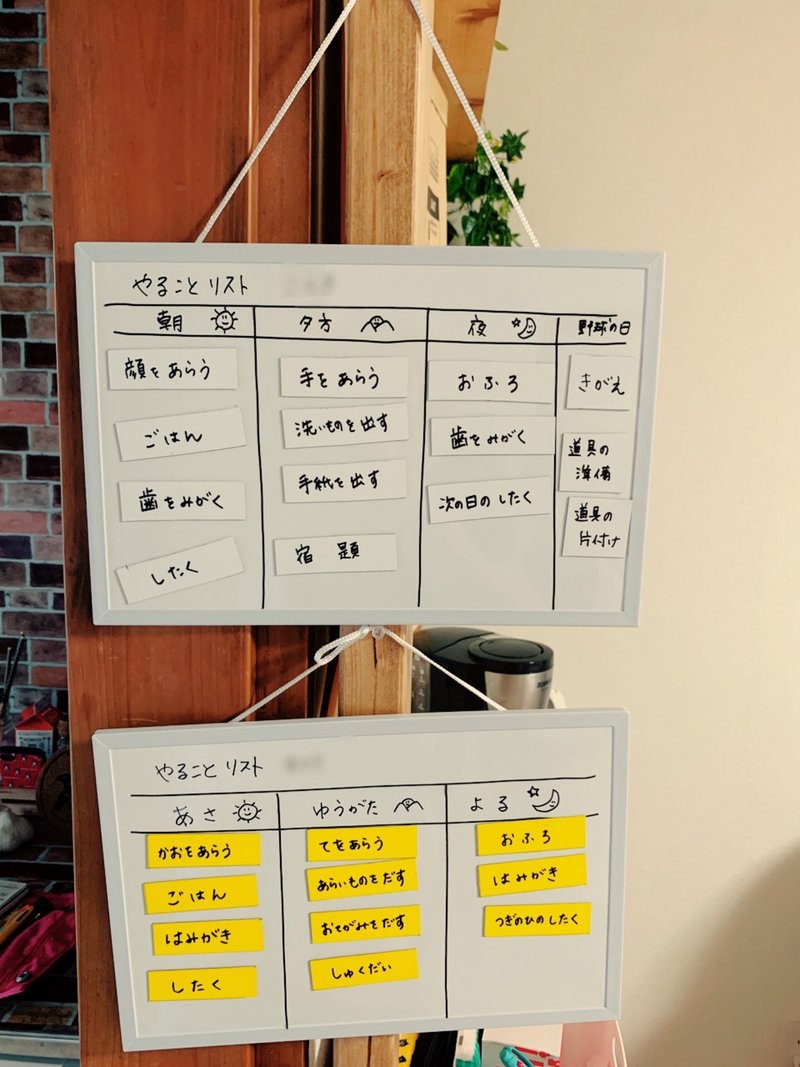 やること リスト
朝
夕方
夜
野球の日
顔を あらう
ごはん
歯をみがく
したく
手を あらう
洗いものを 出す
手紙を 出す
宿 題
おふろ
歯をみがく
次の日の したく
きがえ
道具の
準備
道具の
片付け
やること リスト
あさ
ゆうがた
よる
かおをあらう
ごはん
はみがき
したく
てをあらう
あらいものを だす
おてがみを だす
しゅくだい
おふろ
はみがき
つぎのひの したく